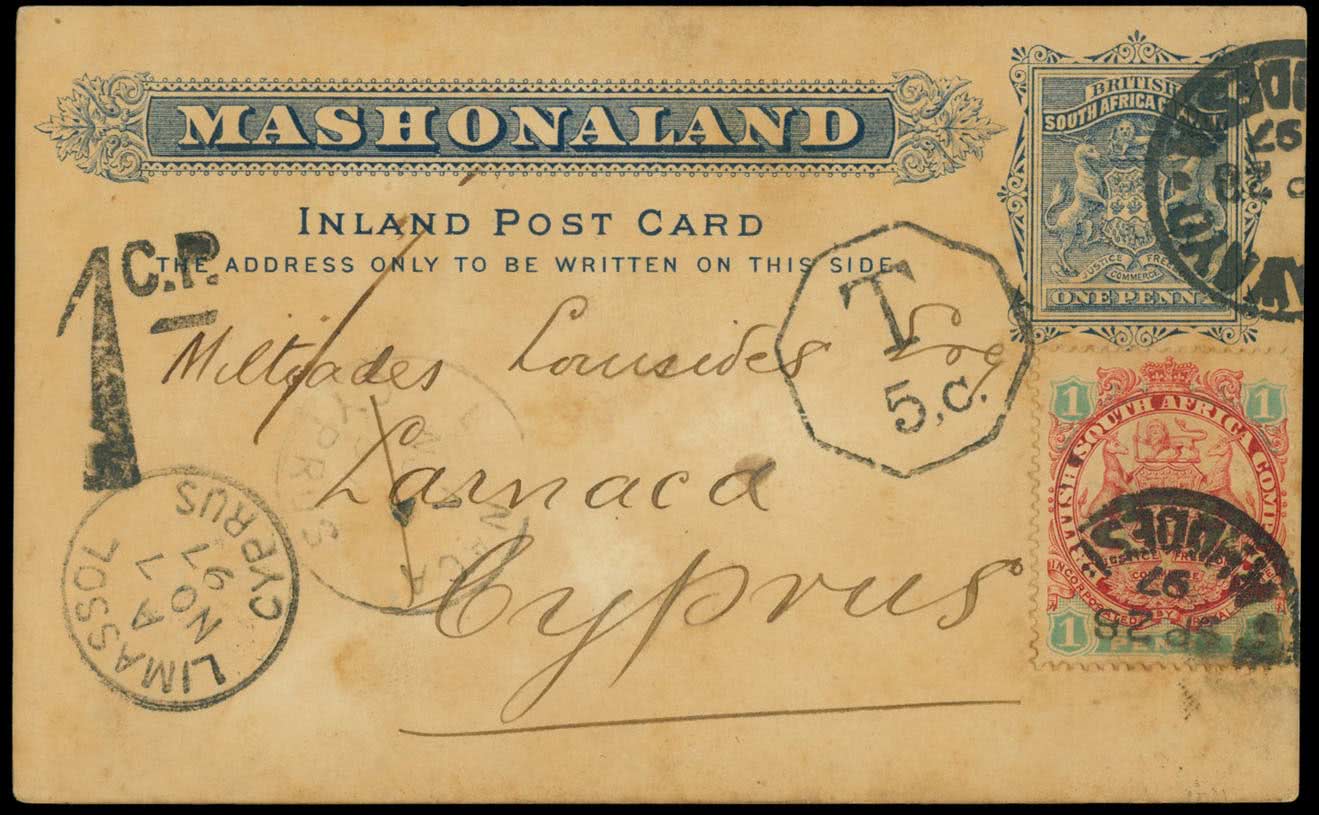 MASHONALAND
INLAND POST CARD
THE ADDRESS ONLY TO BE WRITTEN ON THIS SIDE.
BRITISH
SOUTH AFRICA
JUSTICE
COMMERCE
ONE PENNY
1 C.P.
T
5.c.
Larnaca
Cyprus
LIMASSOL
A
NO 1
97
CYPRUS
CYPRUS
1 1
SOUTH AFRICA
INCORPORATED BY
1 1
97
SP 28
97
28